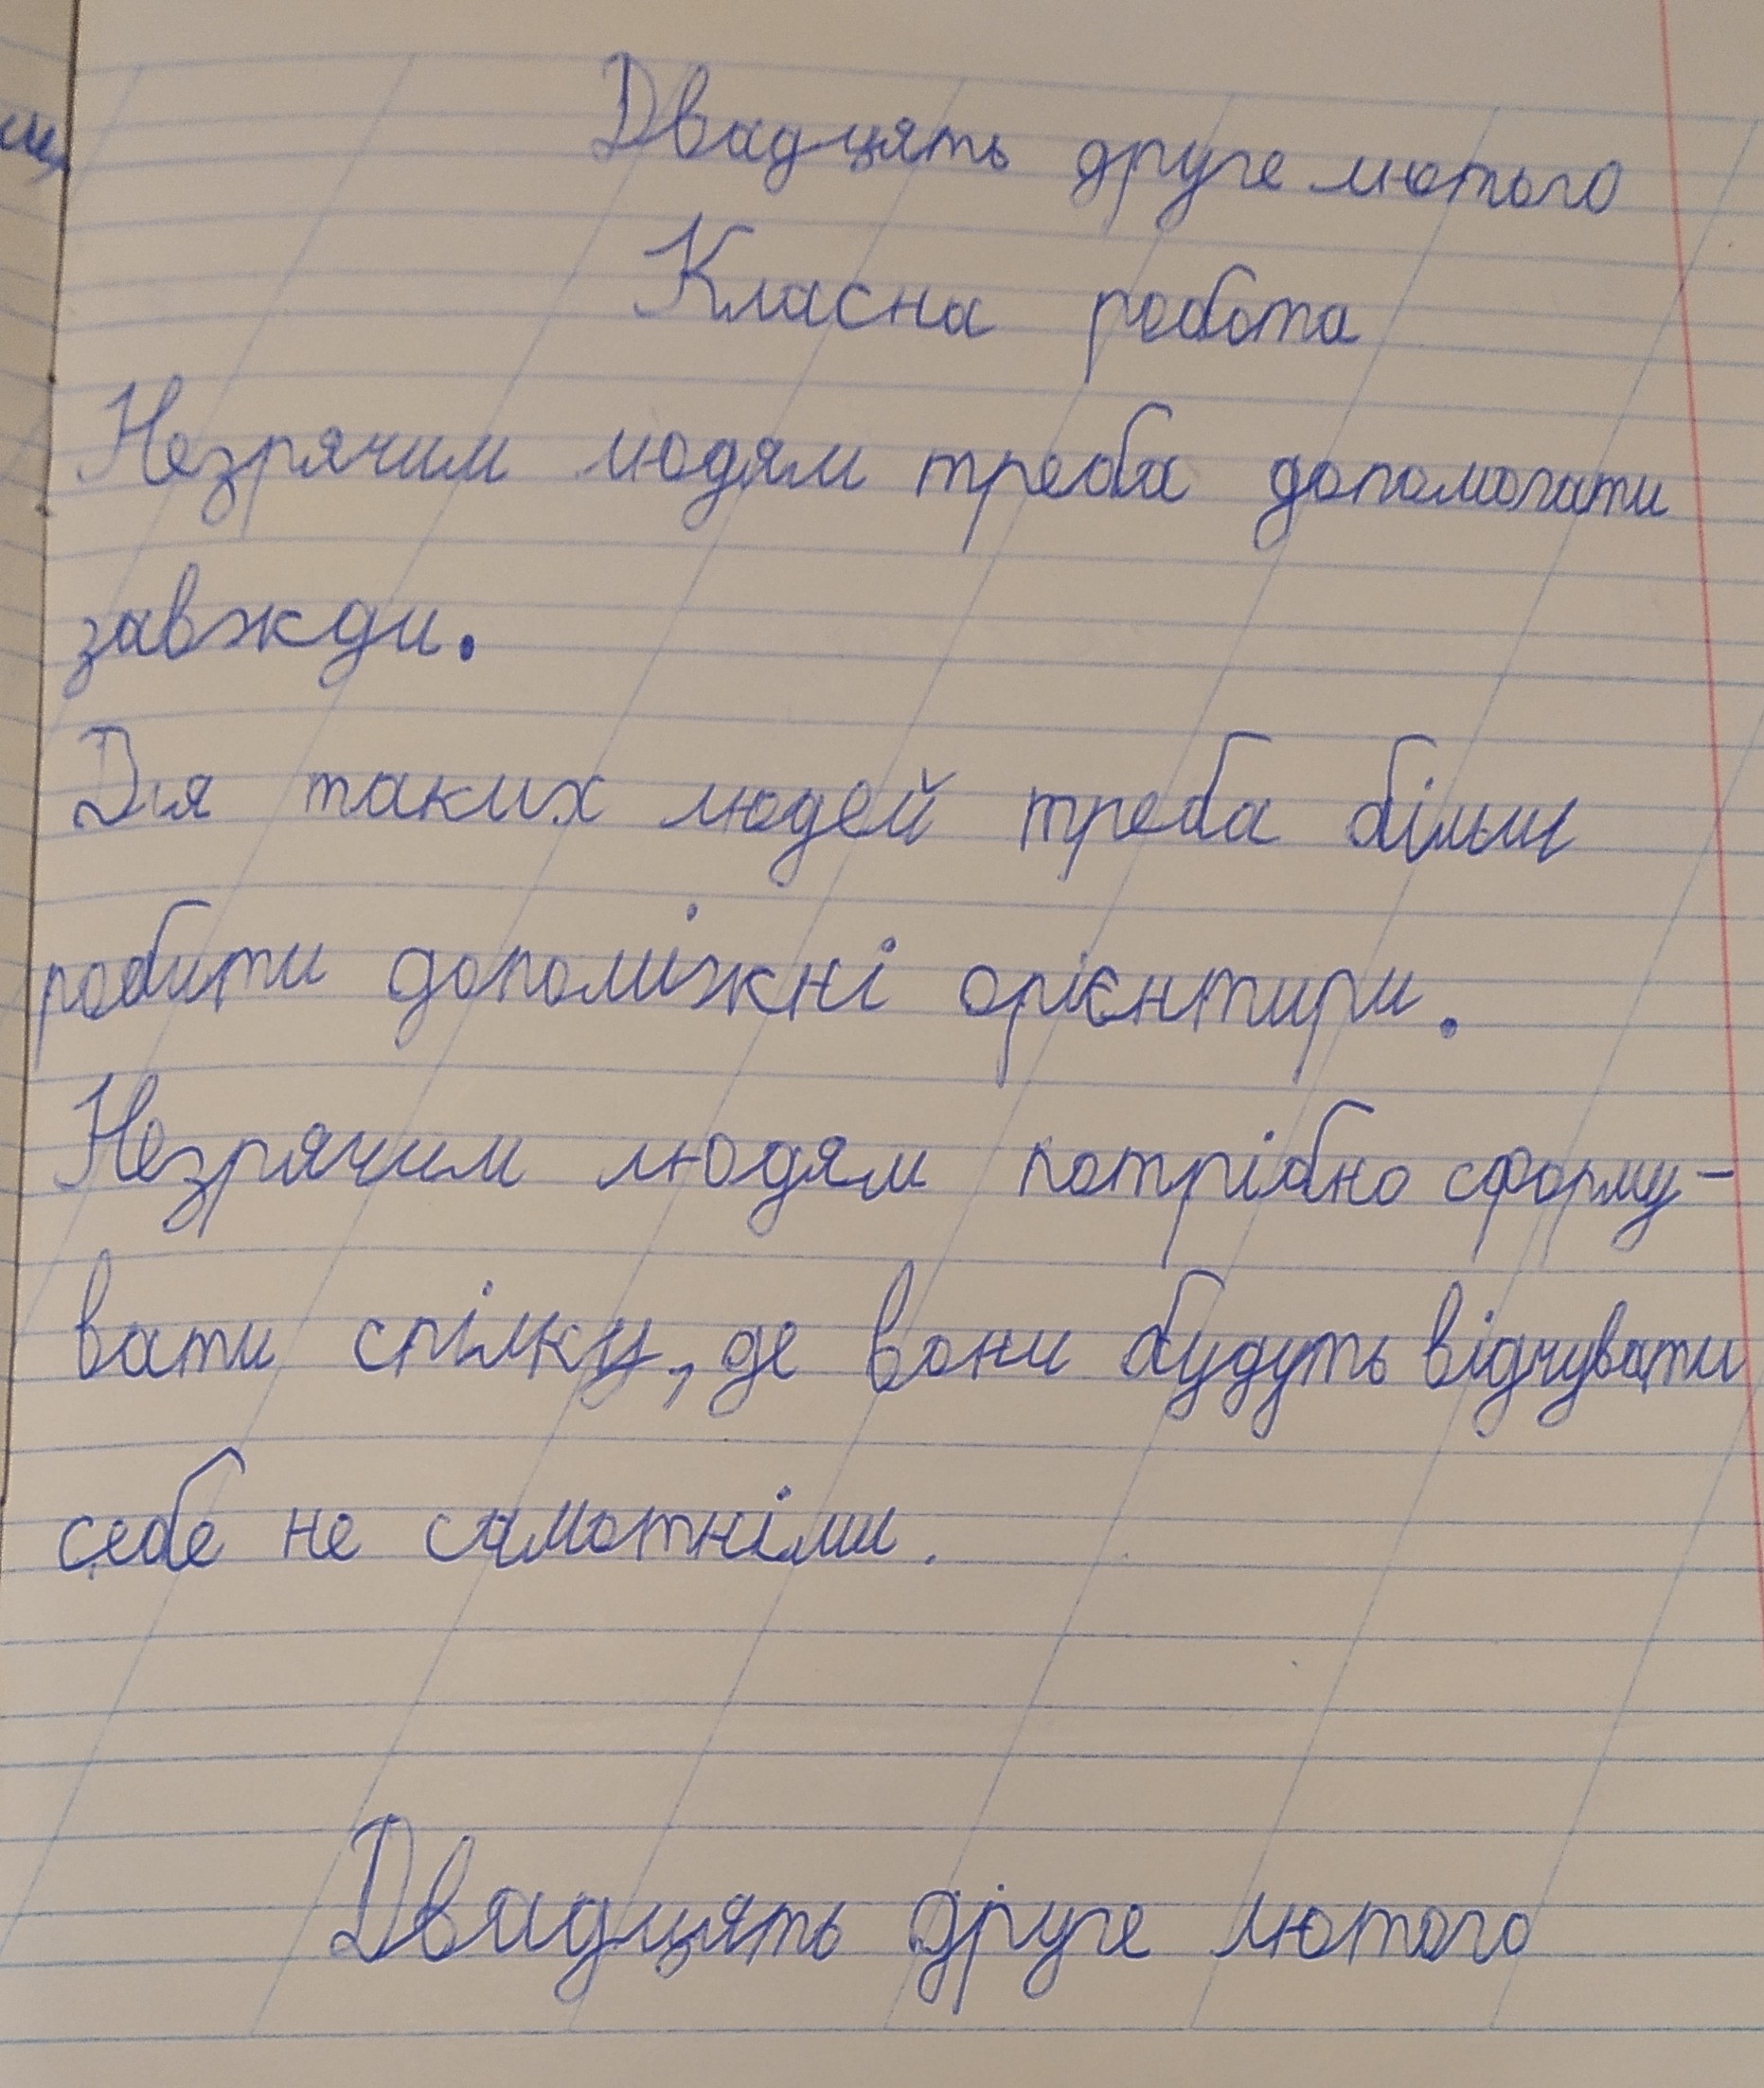 Двадцять друге лютого
Класна робота
Незрячим людям треба допомогати
завжди.
Для таких людей треба більш
робити допоміжні орієнтири.
Незрячим людям потрібно сформу-
вати спілку, де вони будуть відчувати
себе не самотніми.
Двадцять друге лютого